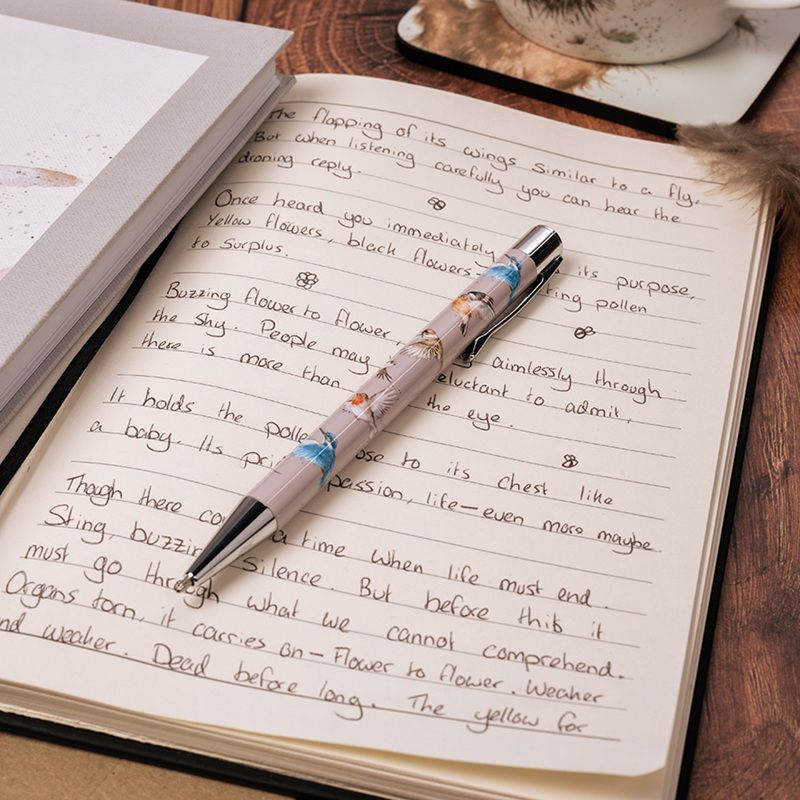 The flapping of its wings similar to a fly.
But when listening carefully you can hear the
droning reply.
Once heard you immediately its purpose,
Yellow flowers, black flowers- ting pollen
to surplus.
Buzzing flower to flower, aimlessly through
the sky. People may eluctant to admit,
there is more than the eye.
It holds the polle ose to its chest like
a baby. Its pri passion, life—even more maybe.
Though there co a time when life must end.
Sting, buzzin Silence. But before this it
must go through what we cannot comprehend.
Organs torn, it carries on — Flower to flower. Weaker
nd weaker. Dead before long. The yellow for